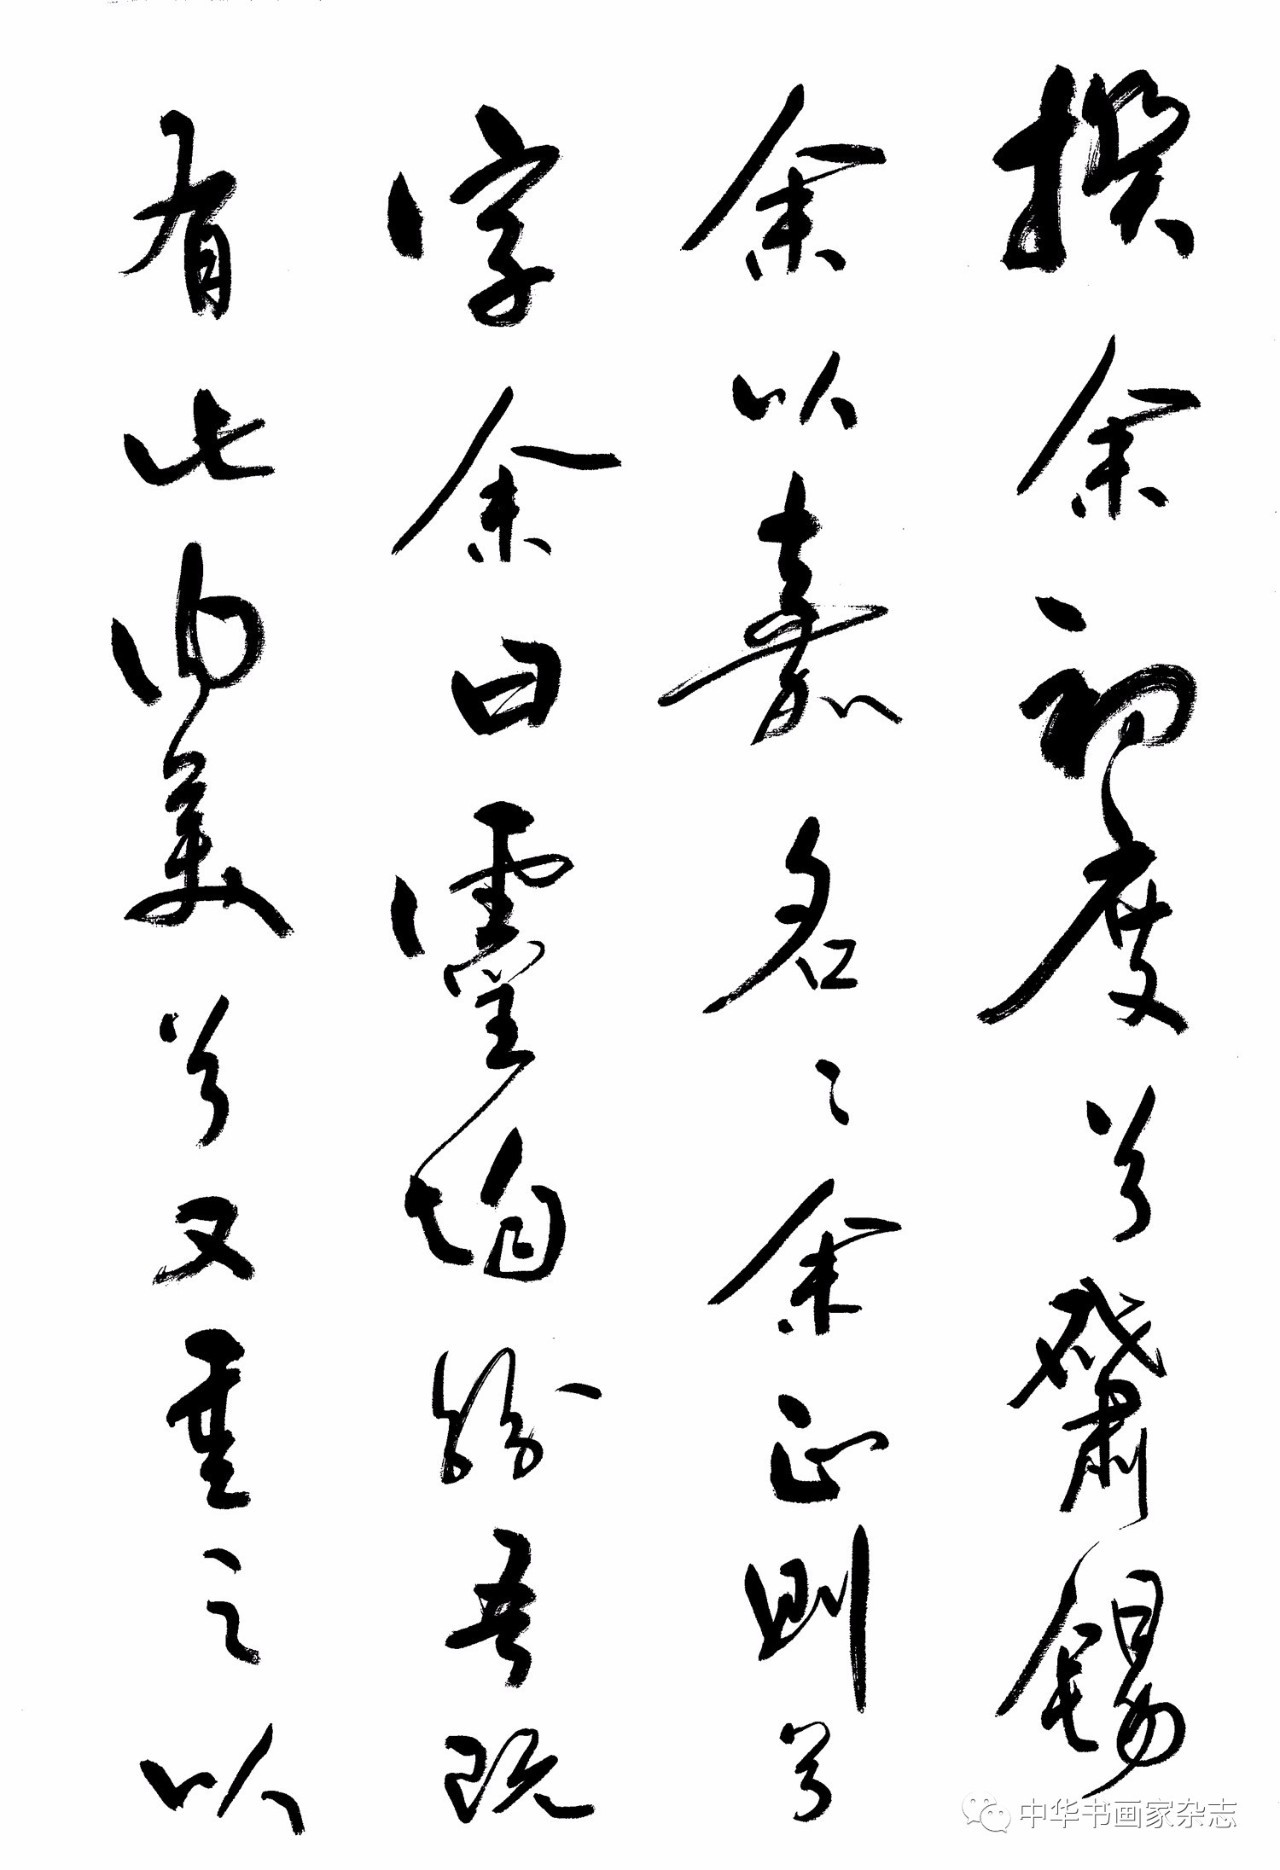 揆余初度兮肇錫
余以嘉名〻余正則兮
字余曰靈均紛吾既
有此內美兮又重之以
中华书画家杂志